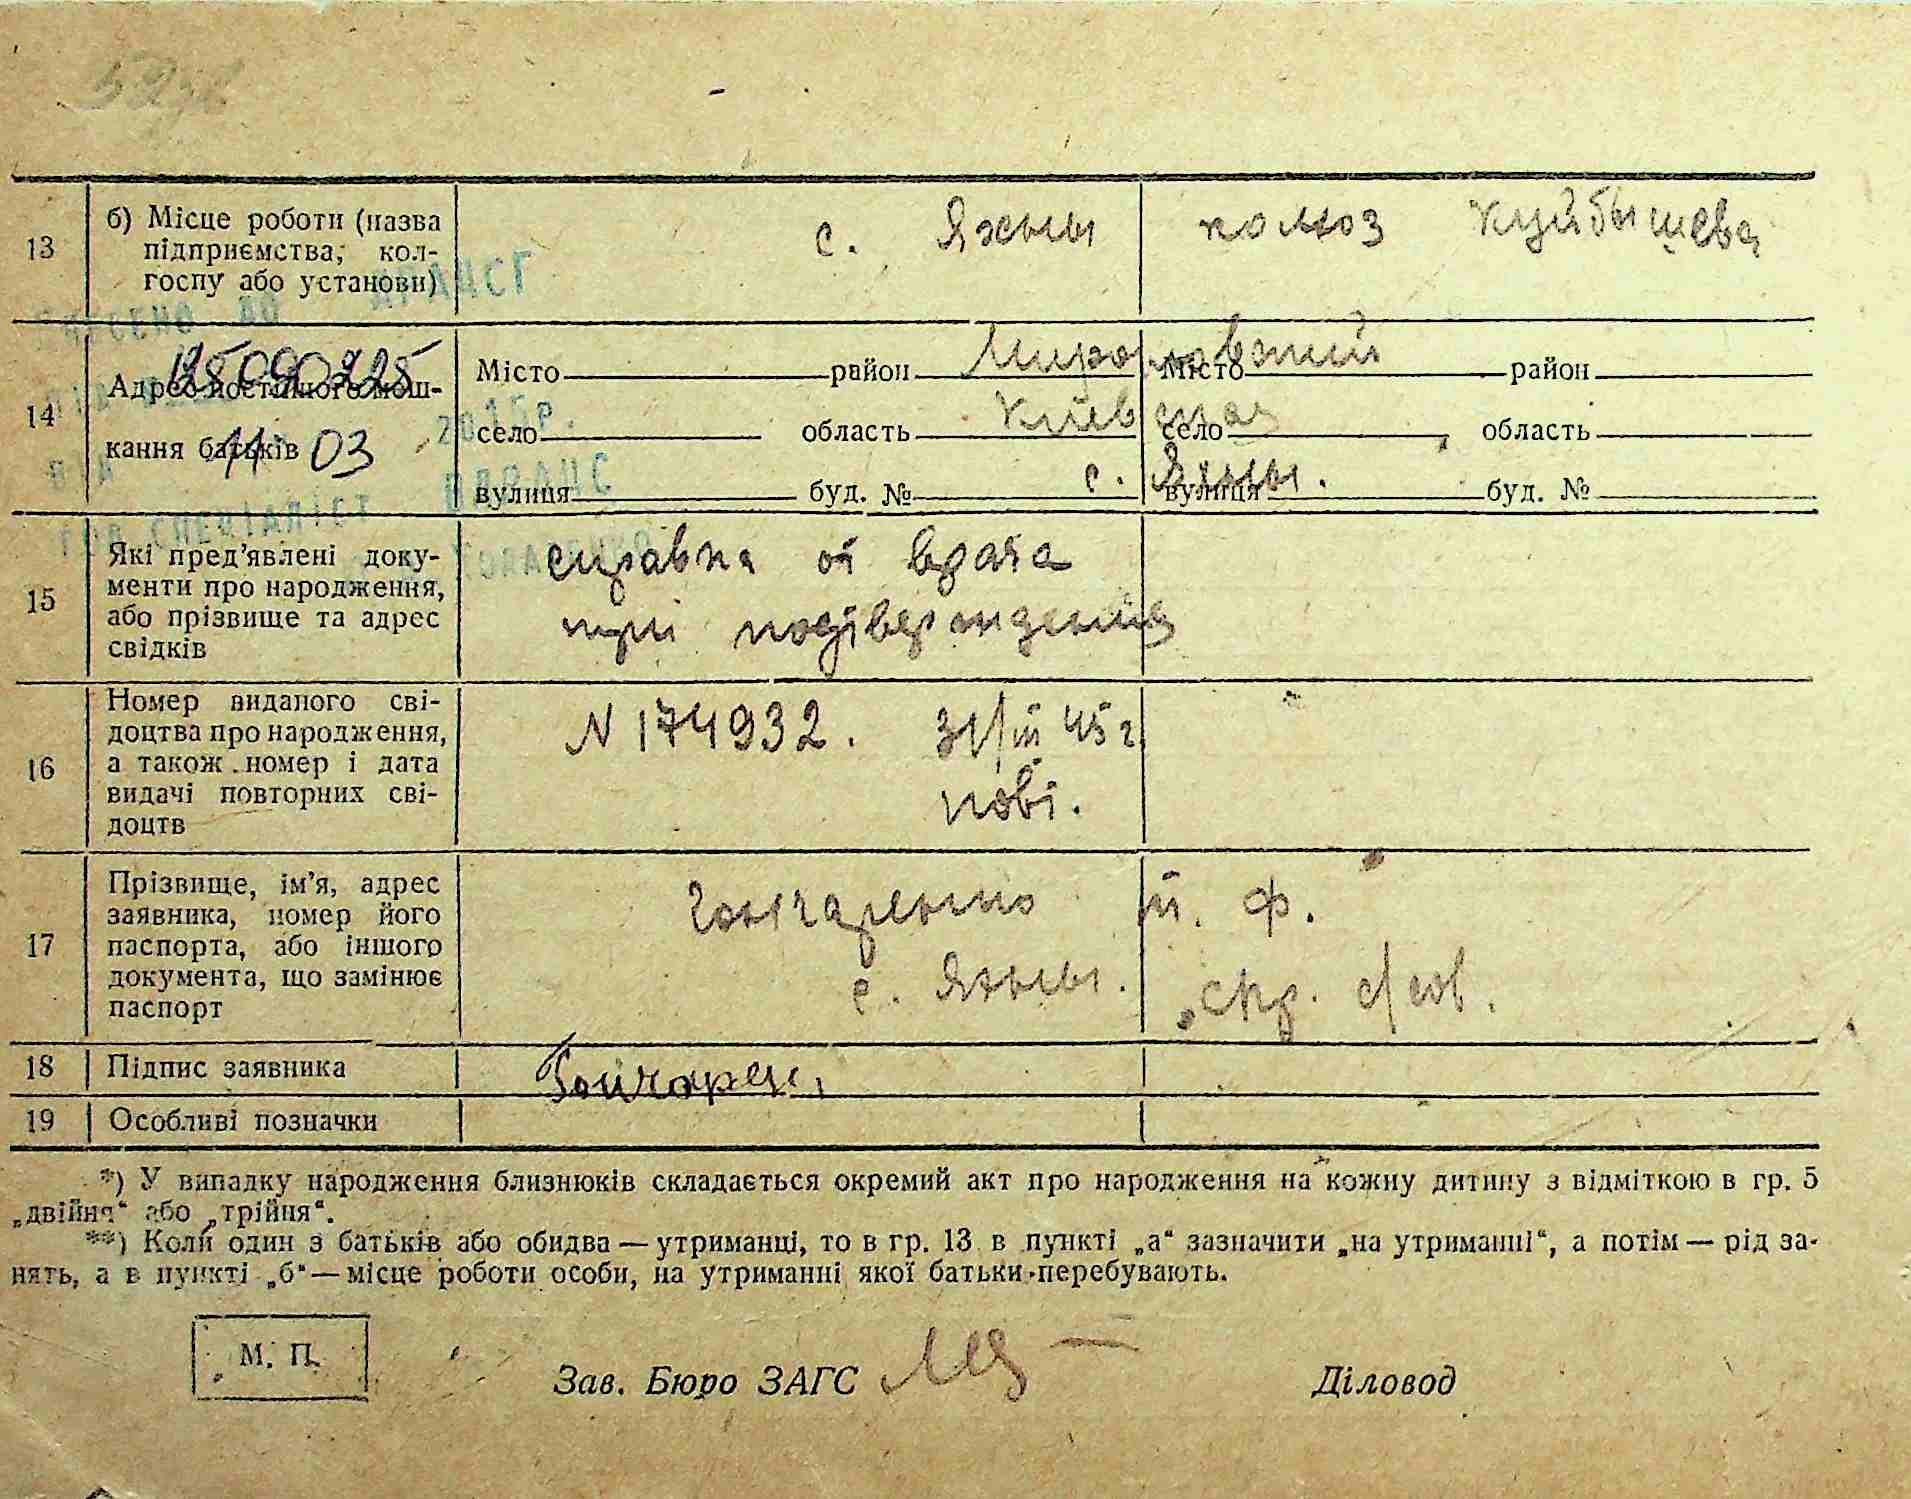 13 б) Місце роботи (назва підприємства, колгоспу або установи) с. Яхны колхоз Куйбышева
ВНЕСЕНО ДО ДРАЦСГ
14 Адрес постійного мешкання батьків
125090225
11 03 2015р.
Місто район Мироновский Місто район
село область Киевская село область
вулиця буд. № с. Яхны. вулиця буд. №
15 Які пред’явлені документи про народження, або прізвище та адрес свідків
справка от врача
при подтверждении
16 Номер виданого свідоцтва про народження, а також номер і дата видачі повторних свідоцтв
N 174932. 31/III 45 г.
17 Прізвище, ім’я, адрес заявника, номер його паспорта, або іншого документа, що замінює паспорт
Гончаренко Ф.
с. Яхны. спр. с/сов.
18 Підпис заявника Гончарен
19 Особливі позначки
*) У випадку народження близнюків складається окремий акт про народження на кожну дитину з відміткою в гр. 5
„двійня“ або „трійня“.
**) Коли один з батьків або обидва — утриманці, то в гр. 13 в пункті „а“ зазначити „на утриманні“, а потім — рід за-
нять, а в пункті „б“ — місце роботи особи, на утриманні якої батьки перебувають.
М. П.
Зав. Бюро ЗАГС Діловод